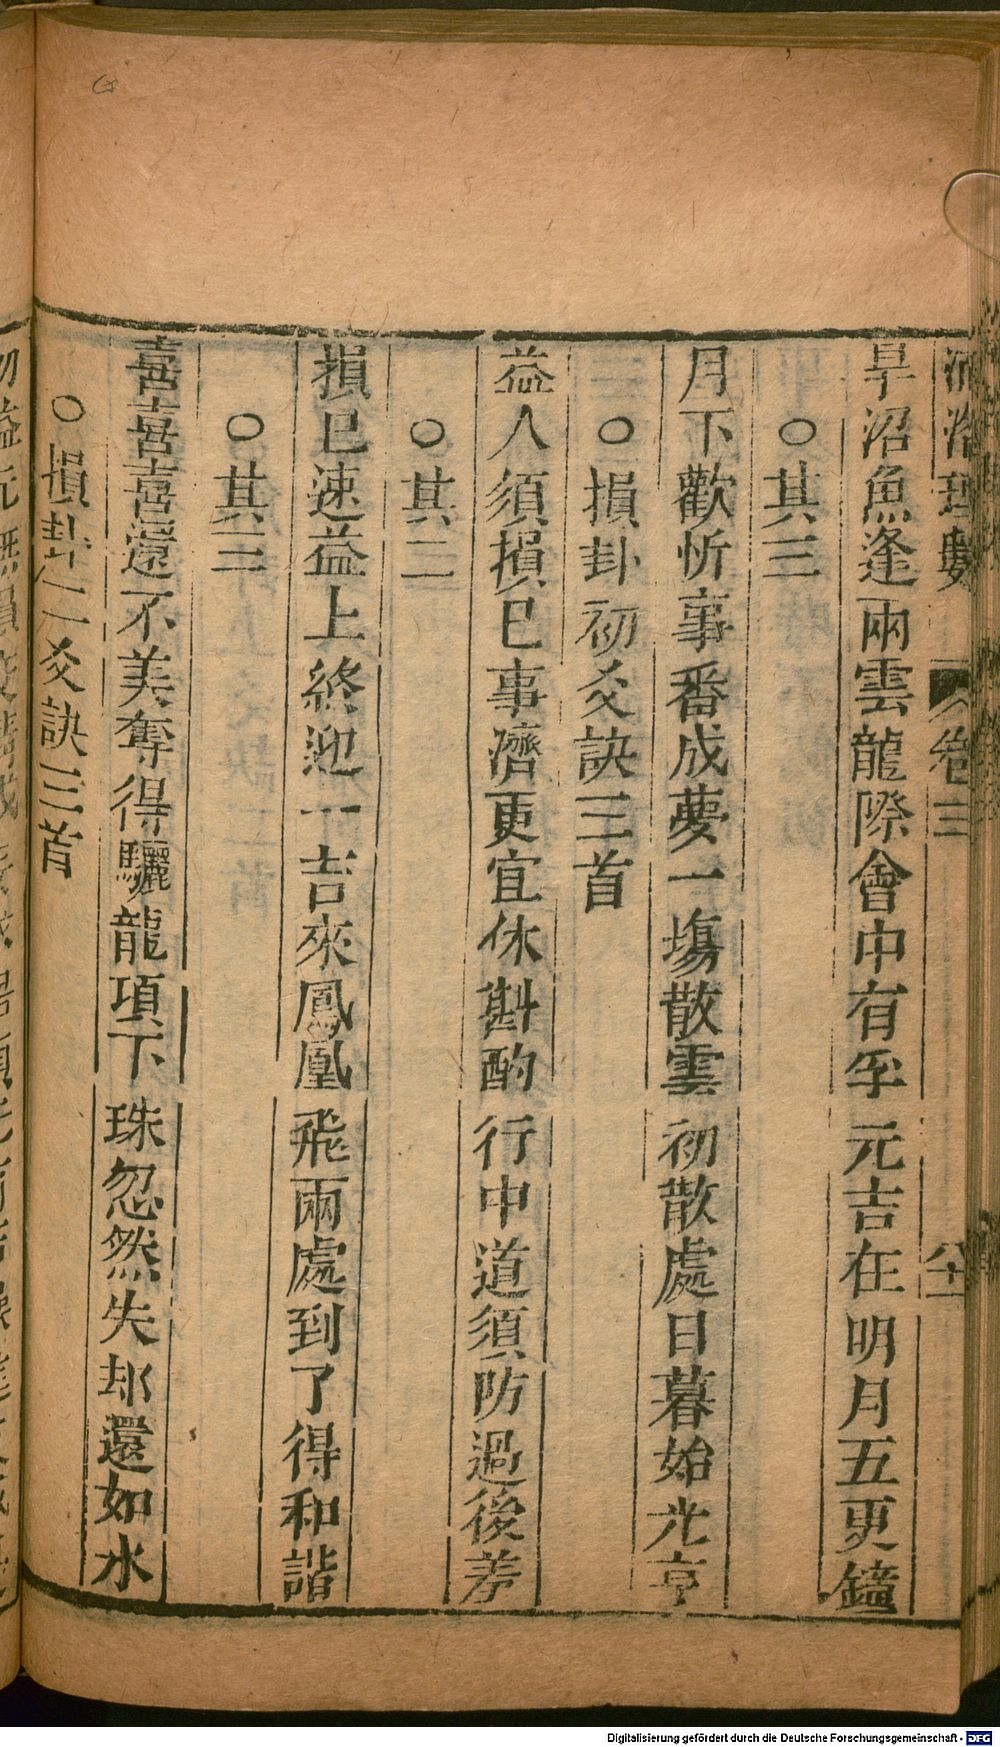 理數 卷三 八十一
旱沼魚逢雨雲龍際會中有孚元吉在明月五更鐘
○其三
月下歡忻事番成夢一塲散雲初散處日暮始光亨
○損卦初爻訣三首
益人須損巳事濟更宜休斟酌行中道須防過後差
○其二
損巳速益上終迎一吉來鳳凰飛兩處到了得和諧
○其三
喜喜喜還不美奪得驪龍項下珠忽然失却還如水
○損卦二爻訣三首
Digitalisierung gefördert durch die Deutsche Forschungsgemeinschaft - DFG